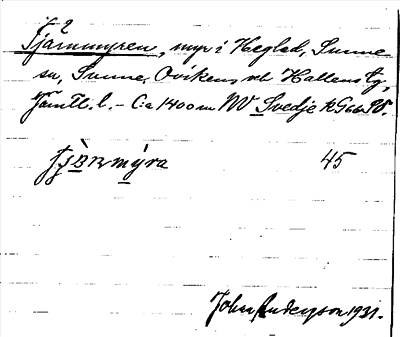 2
Tjärnmyren, myr i Hegled, Sunne
sn, Sunne, Ovikens och Hallens tg,
Jämtl. l. – C:a 1400 m NV Svedje
tjä̀rnmýra 45
John Anderson 1931.